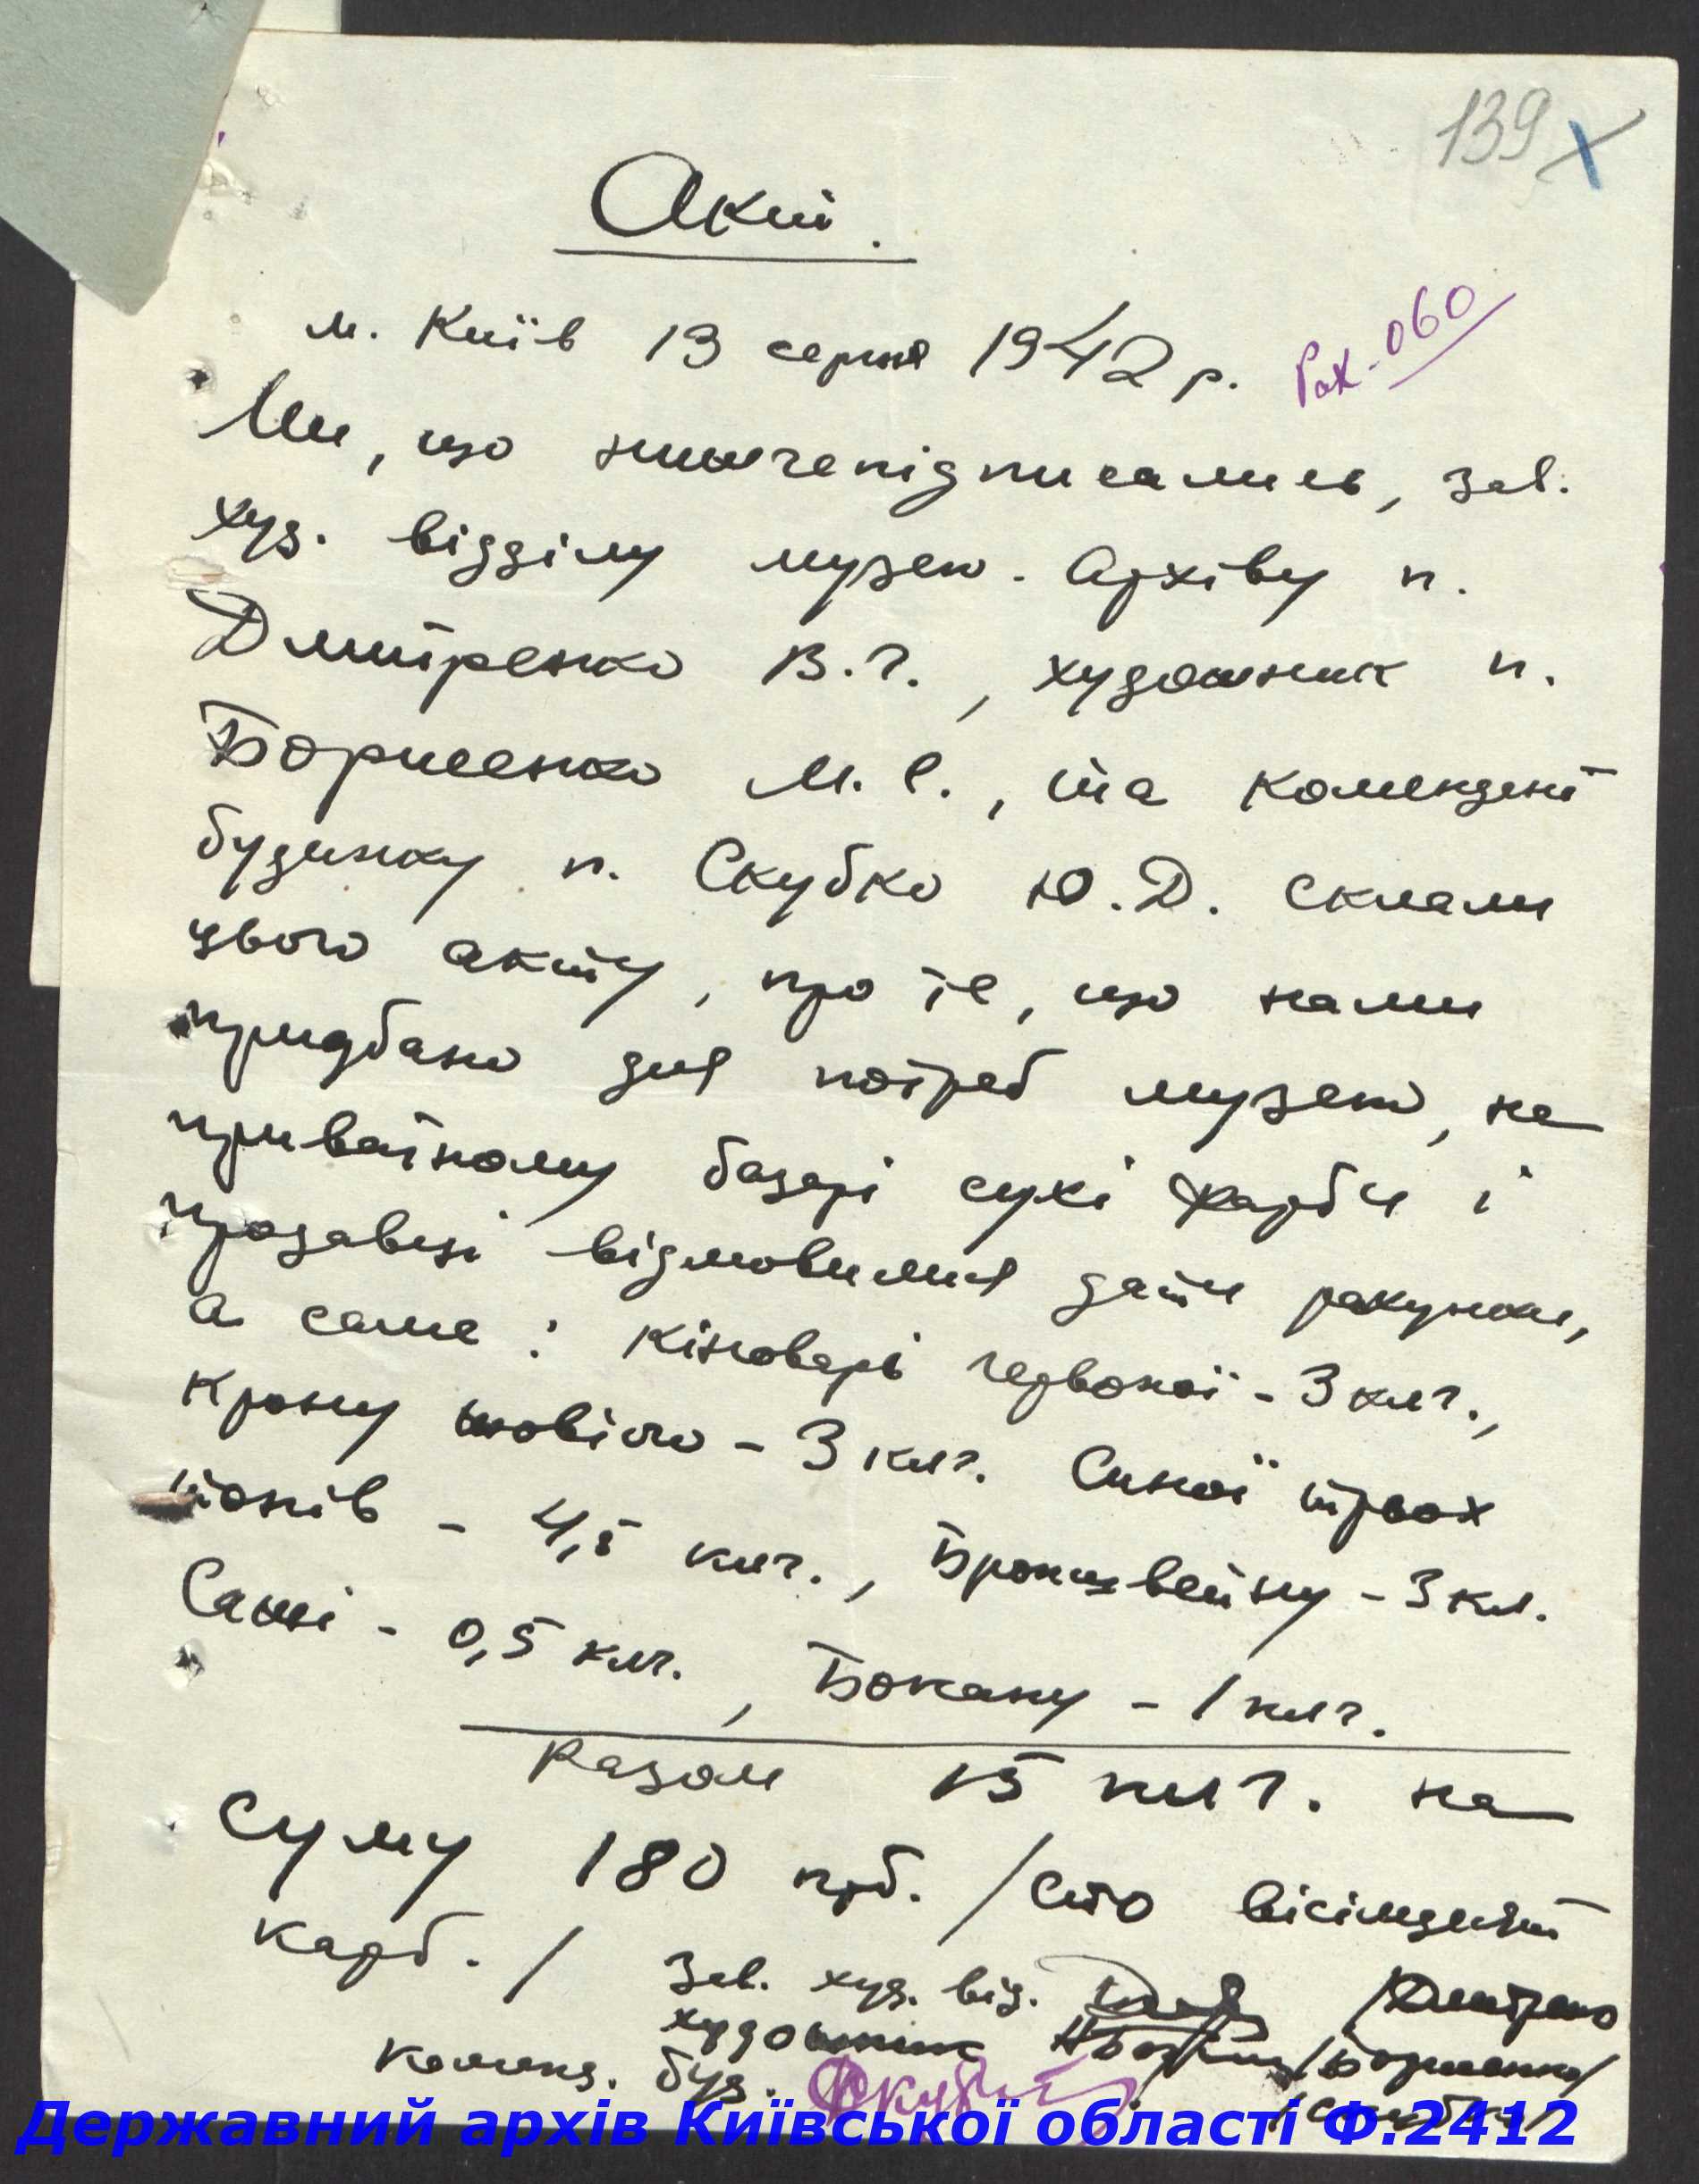 139
Акт.
м. Київ 13 серпня 1942 р.
Рах-060
Ми, що нижчепідписались, зав.
худ. відділу музею. Архіву п.
Дмитренко В.Г., художник п.
Борисенко М.Є., та комендант
будинку п. Скубко Ю.Д. склали
цього акту, про те, що нами
придбано для потреб музею, на
приватному базарі сухі фарби і
продавці відмовилися дати рахунки,
а саме: кіноварі червоної - 3 клг.,
крону жовтого - 3 клг. Синьої трьох
тонів - 4,5 клг., Брон­швейну - 3 кл.
Сажі - 0,5 клг., Бокану - 1 клг.
Разом 15 клг. на
суму 180 крб. /сто вісімдесят
карб./
Зав. худ. від. /Дмитренко
художник /Борисенко/
коменд. буд. Скубко /Скубко/
Державний архів Київської області Ф.2412